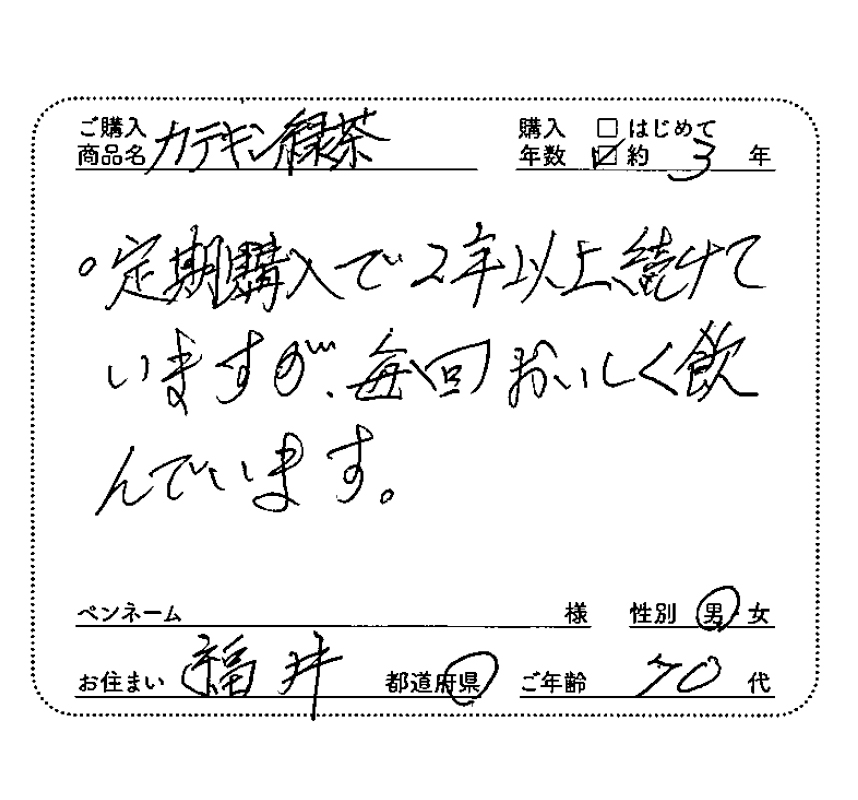 ご購入 商品名 カテキン緑茶 購入 年数 □ はじめて ☑ 約 3 年
。定期購入で2年以上続けて
いますが、毎回おいしく飲
んでいます。
ペンネーム 様 性別 男 女
お住まい 福井 都道府県 ご年齢 70 代